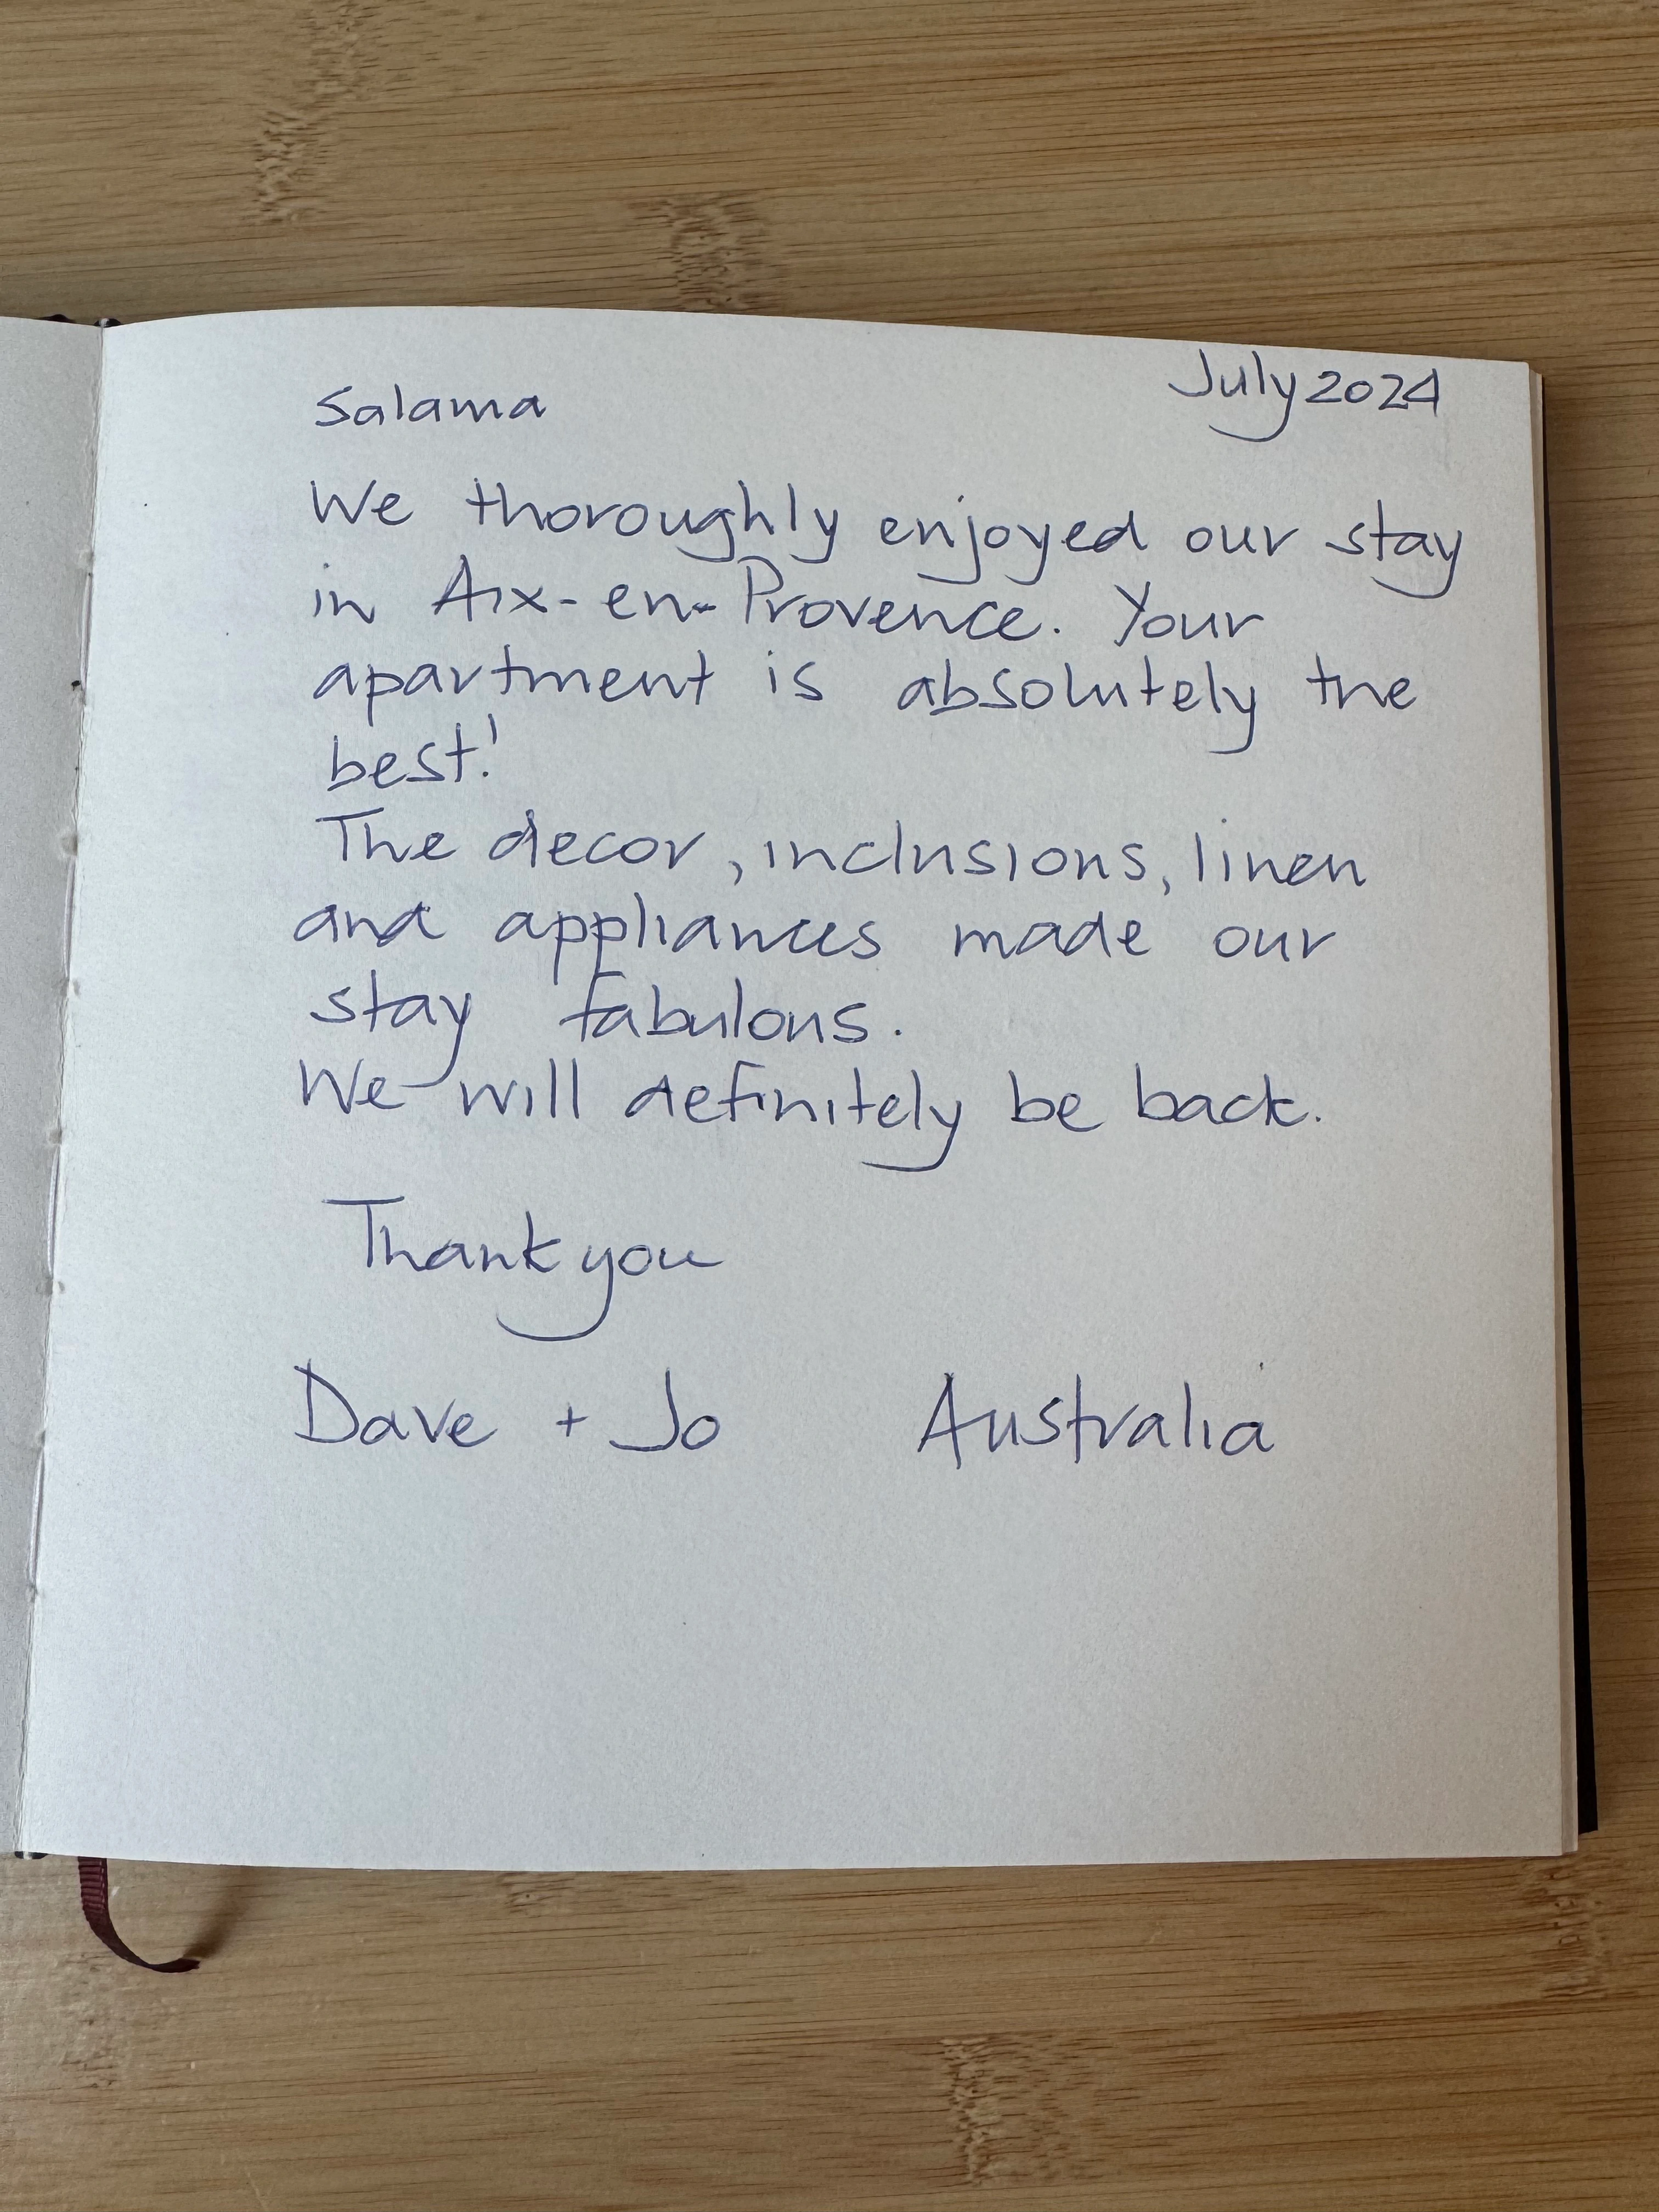 Salama July 2024
We thoroughly enjoyed our stay
in Aix-en-Provence. Your
apartment is absolutely the
best!
The decor, inclusions, linen
and appliances made our
stay fabulous.
We will definitely be back.
Thank you
Dave + Jo Australia